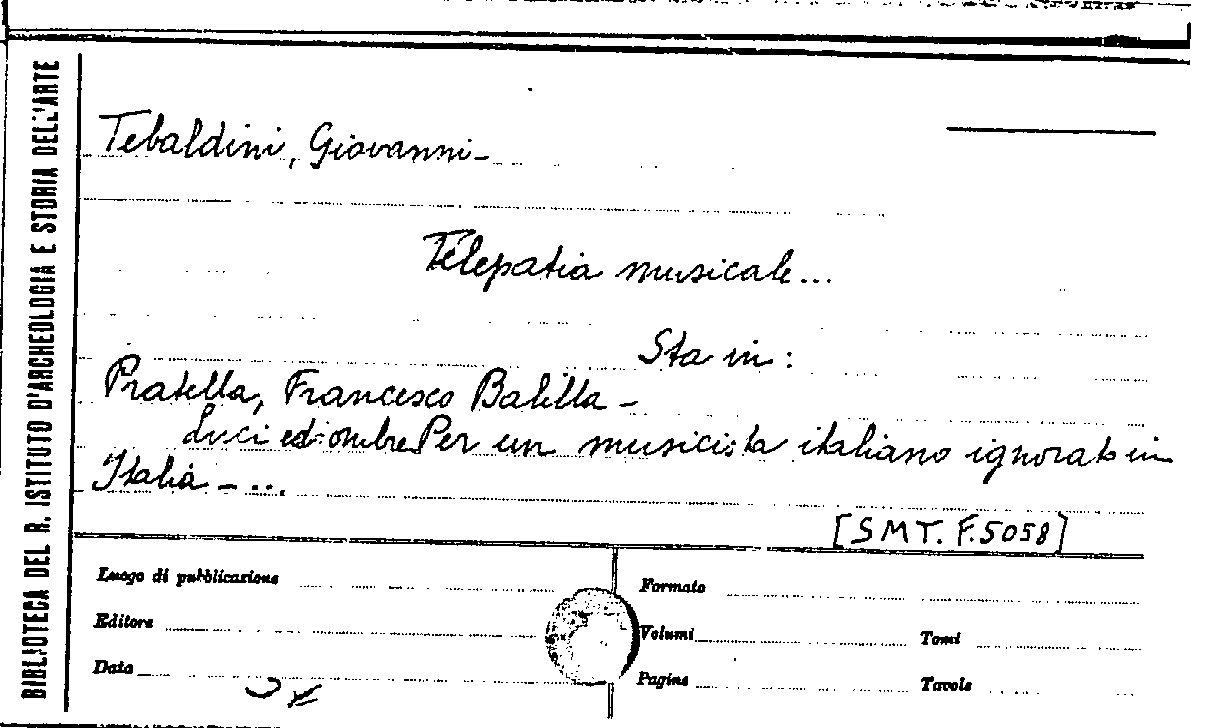 BIBLIOTECA DEL R. ISTITUTO D'ARCHEOLOGIA E STORIA DELL'ARTE
Tebaldini, Giovanni-
Telepatia musicale...
Sta in:
Pratella, Francesco Balilla -
Luci ed ombre. Per un musicista italiano ignorato in
Italia - ...
[SMT. F. 5058]
Luogo di pubblicazione
Formato
Editore
Volumi Tomi
Data
Pagine Tavole